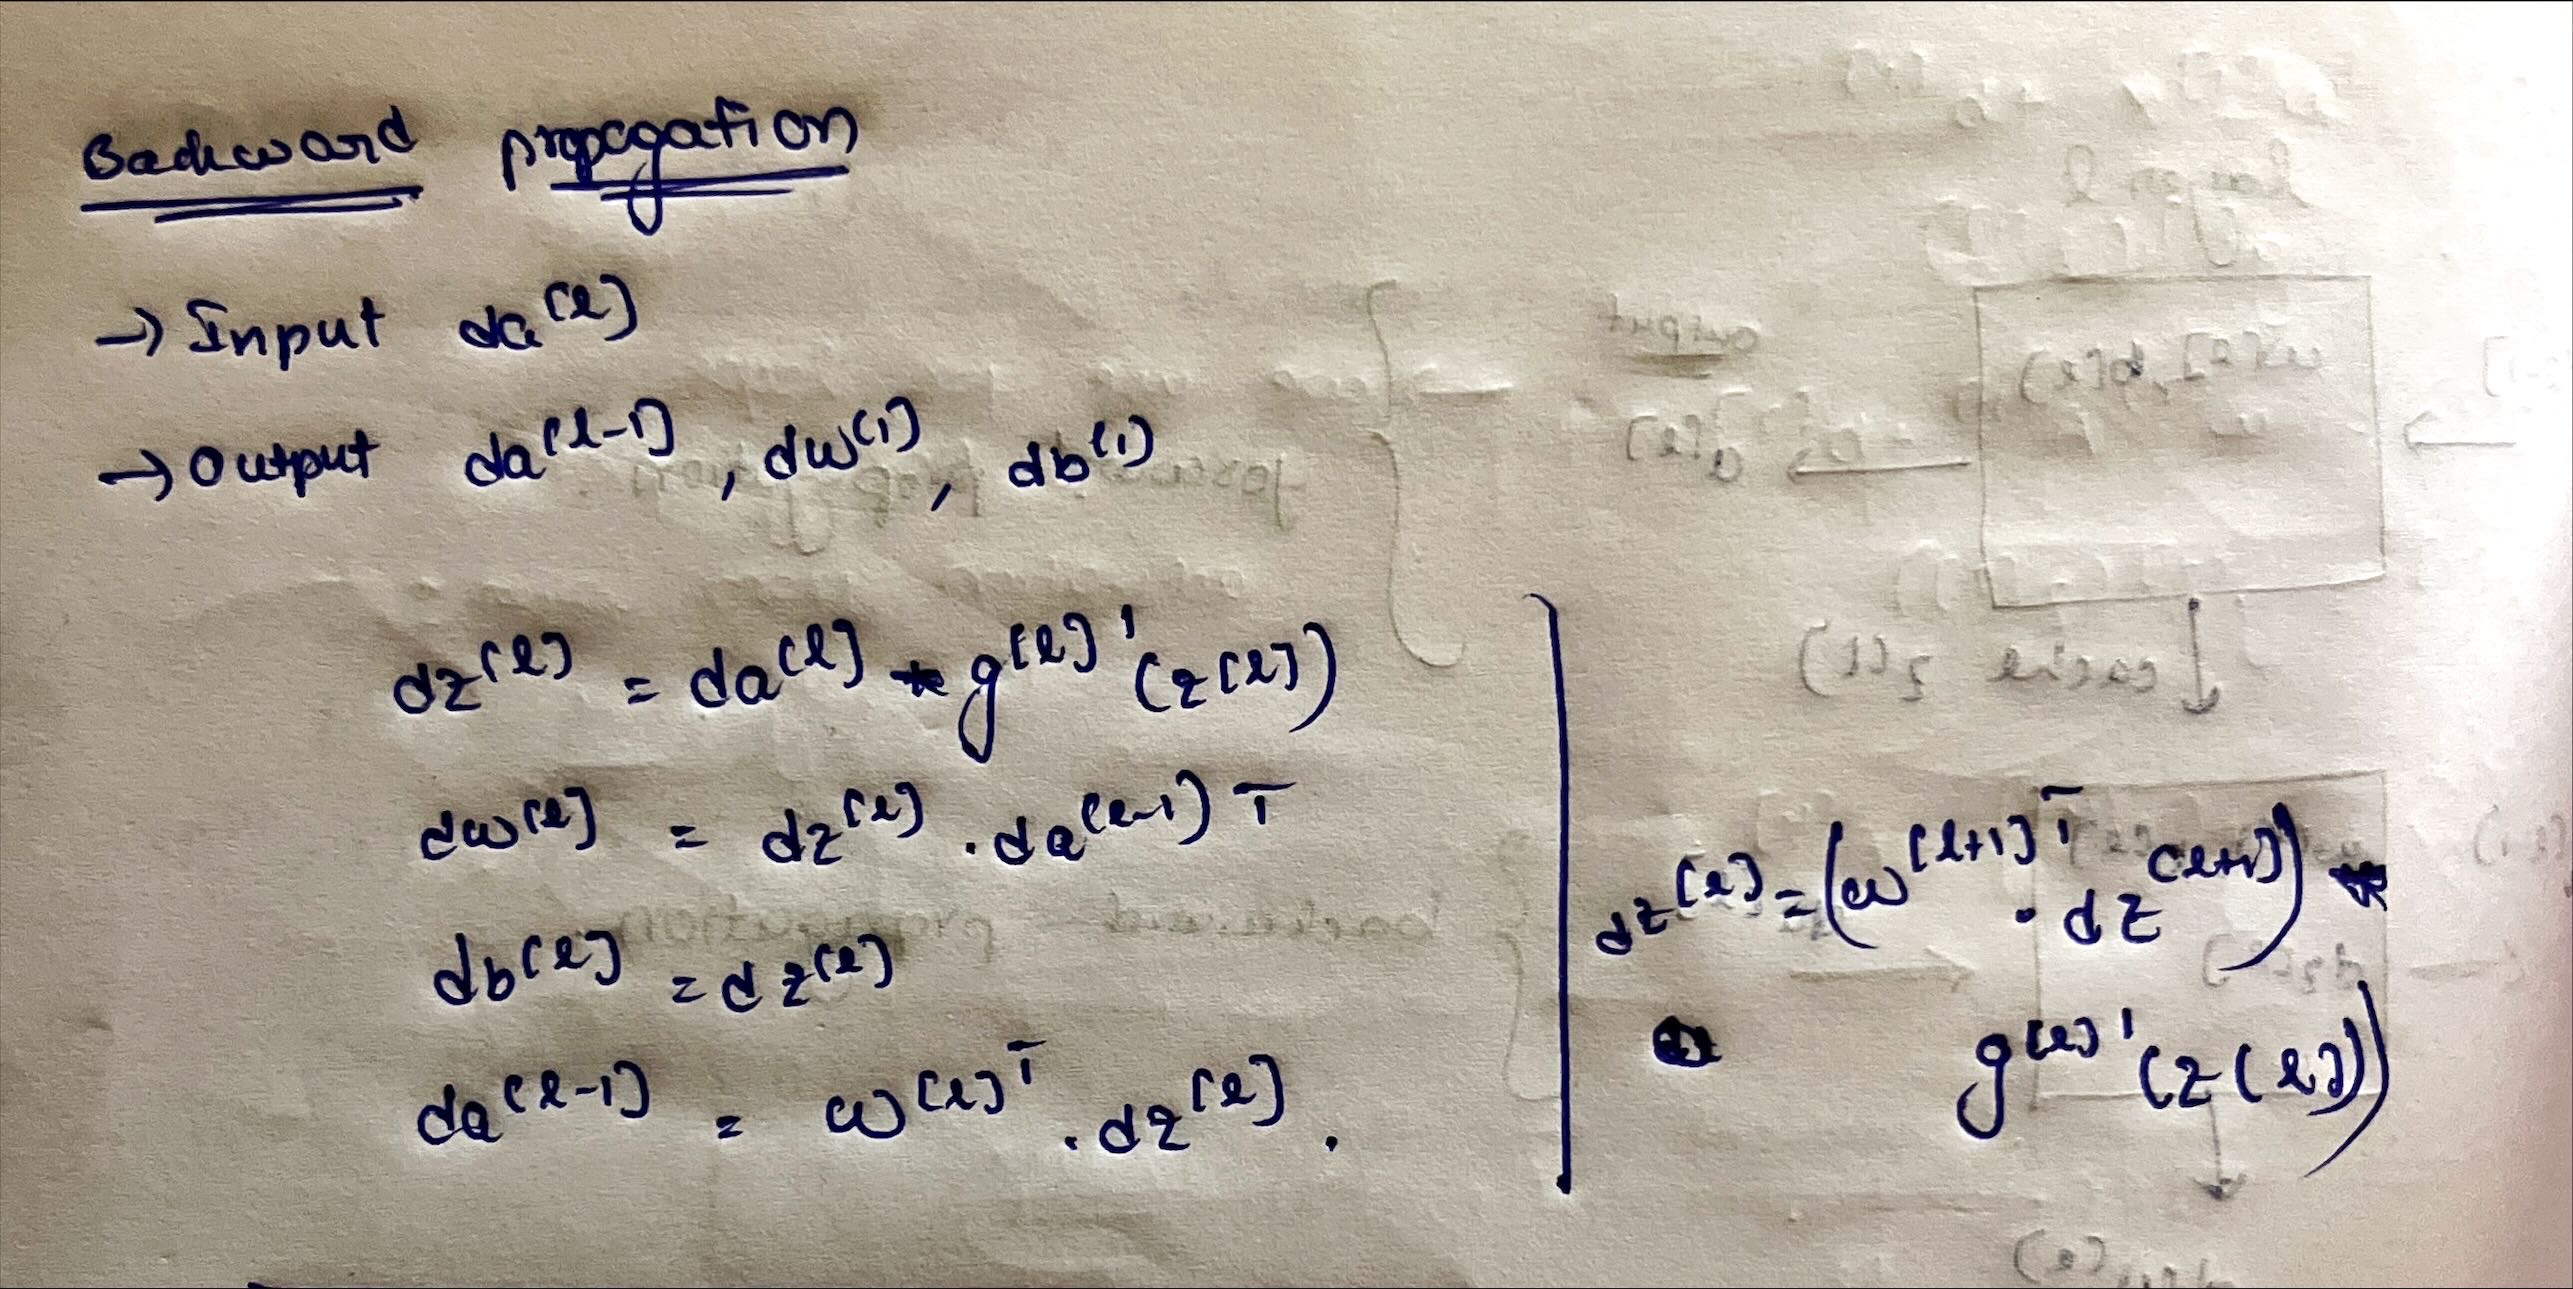 Backward propagation
→ Input da^[l]
→ Output da^[l-1], dw^(1), db^(1)
dz^[l] = da^[l] * g^[l]'(z^[l])
dw^[l] = dz^[l] . da^(l-1) T
db^[l] = dz^[l]
da^[l-1] = w^[l]T . dz^[l].
dz^[l] = (w^[l+1]T . dz^(l+1)) *
g^[l]'(z^(l))